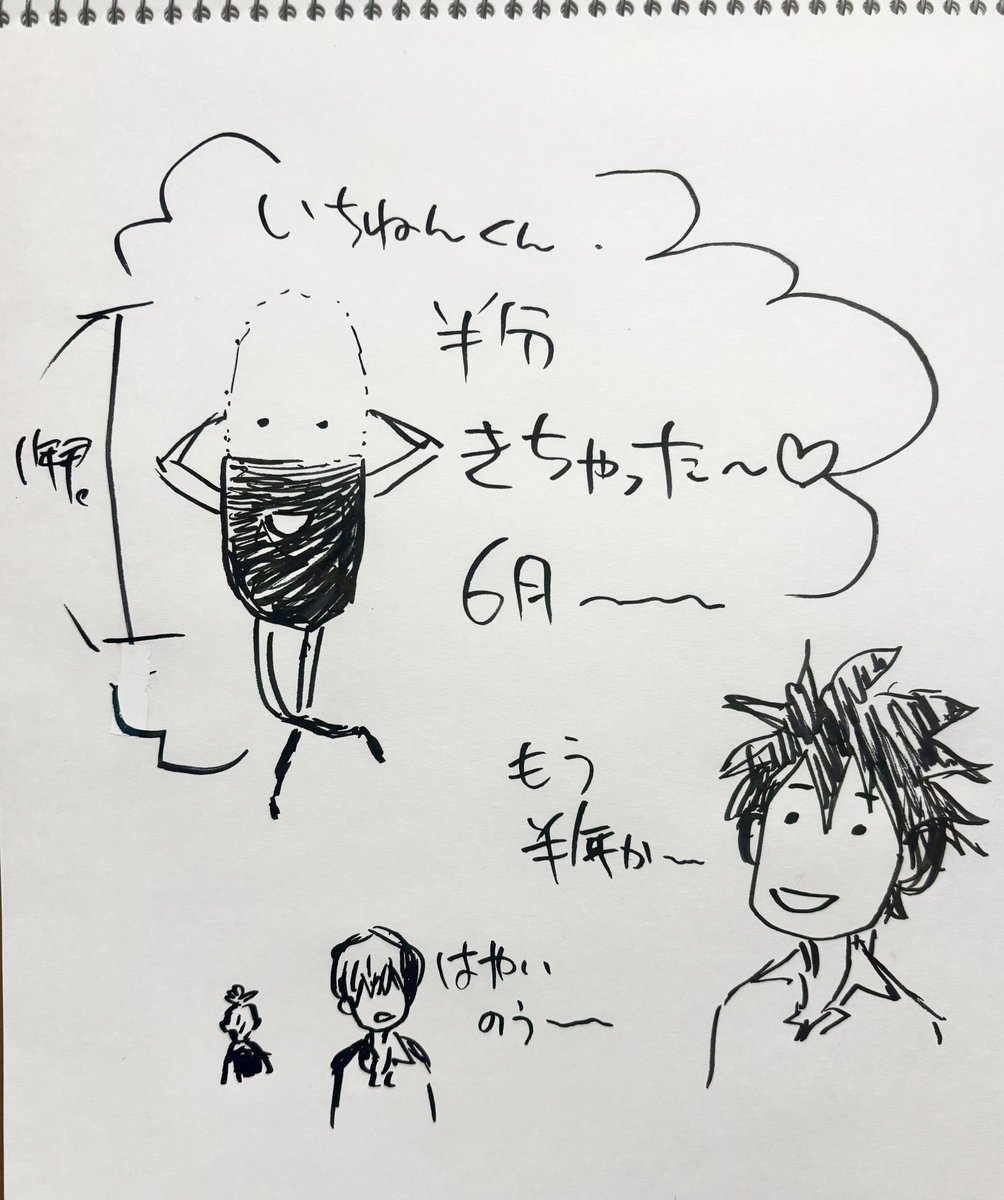 いちねんくん.
半分
きちゃった〜♡
6月〜
1年間。
もう
半年か〜
はやい
のう〜